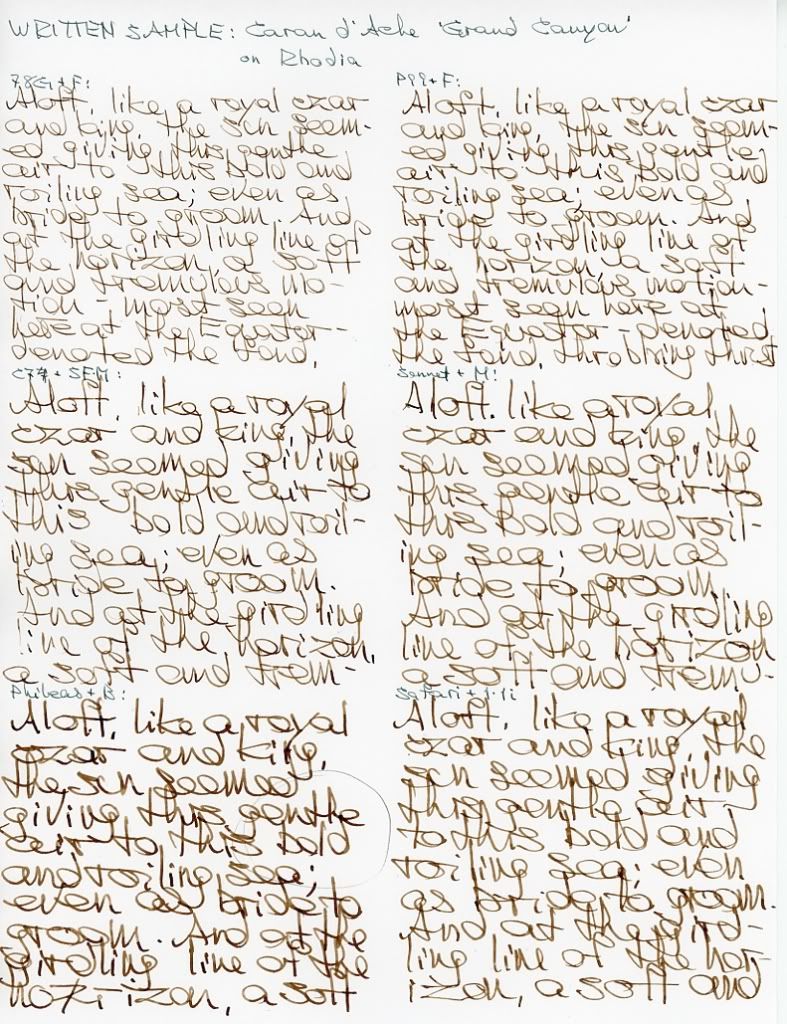 WRITTEN SAMPLE: Caran d'Ache 'Grand Canyon'
on Rhodia
78G + F:
Aloft, like a royal czar
and king, the sun seem-
ed giving this gentle
air to this bold and
roiling sea; even as
bride to groom. And
at the girdling line of
the horizon, a soft
and tremulous mo-
tion - most seen
here at the Equator -
denoted the fond,
P99 + F:
Aloft, like a royal czar
and king, the sun seem-
ed giving this gentle
air to this bold and
roiling sea; even as
bride to groom. And
at the girdling line of
the horizon, a soft
and tremulous motion -
most seen here at
the Equator - denoted
the fond, throbbing thrust
C74 + SFM:
Aloft, like a royal
czar and king, the
sun seemed giving
this gentle air to
this bold and roil-
ing sea; even as
bride to groom.
And at the girdling
line of the horizon,
a soft and trem-
Sennet + M:
Aloft, like a royal
czar and king, the
sun seemed giving
this gentle air to
this bold and roil-
ing sea; even as
bride to groom
And at the girdling
line of the horizon
a soft and tremu-
Phileas + B:
Aloft, like a royal
czar and king,
the sun seemed
giving this gentle
air to this bold
and roiling sea;
even as bride to
groom. And at the
girdling line of the
horizon, a soft
Safari + 1.1i
Aloft, like a royal
czar and king, the
sun seemed giving
this gentle air
to this bold and
roiling sea; even
as bride to groom.
And at the gird-
ling line of the hor-
izon, a soft and